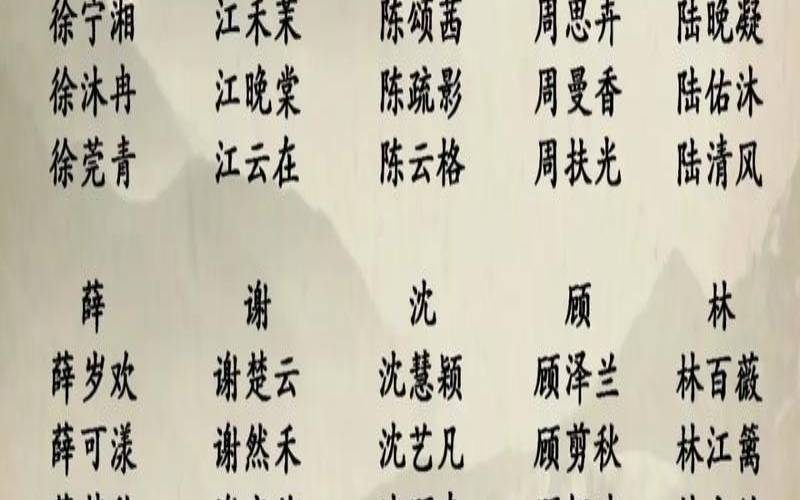 徐宁湘 江禾茉 陈颂茜 周思卉 陆晚凝
徐沐冉 江晚棠 陈疏影 周曼香 陆佑沐
徐莞青 江云在 陈云格 周扶光 陆清风
薛 谢 沈 顾 林
薛岁欢 谢楚云 沈慧颖 顾泽兰 林百薇
薛可漾 谢然禾 沈艺凡 顾剪秋 林江篱